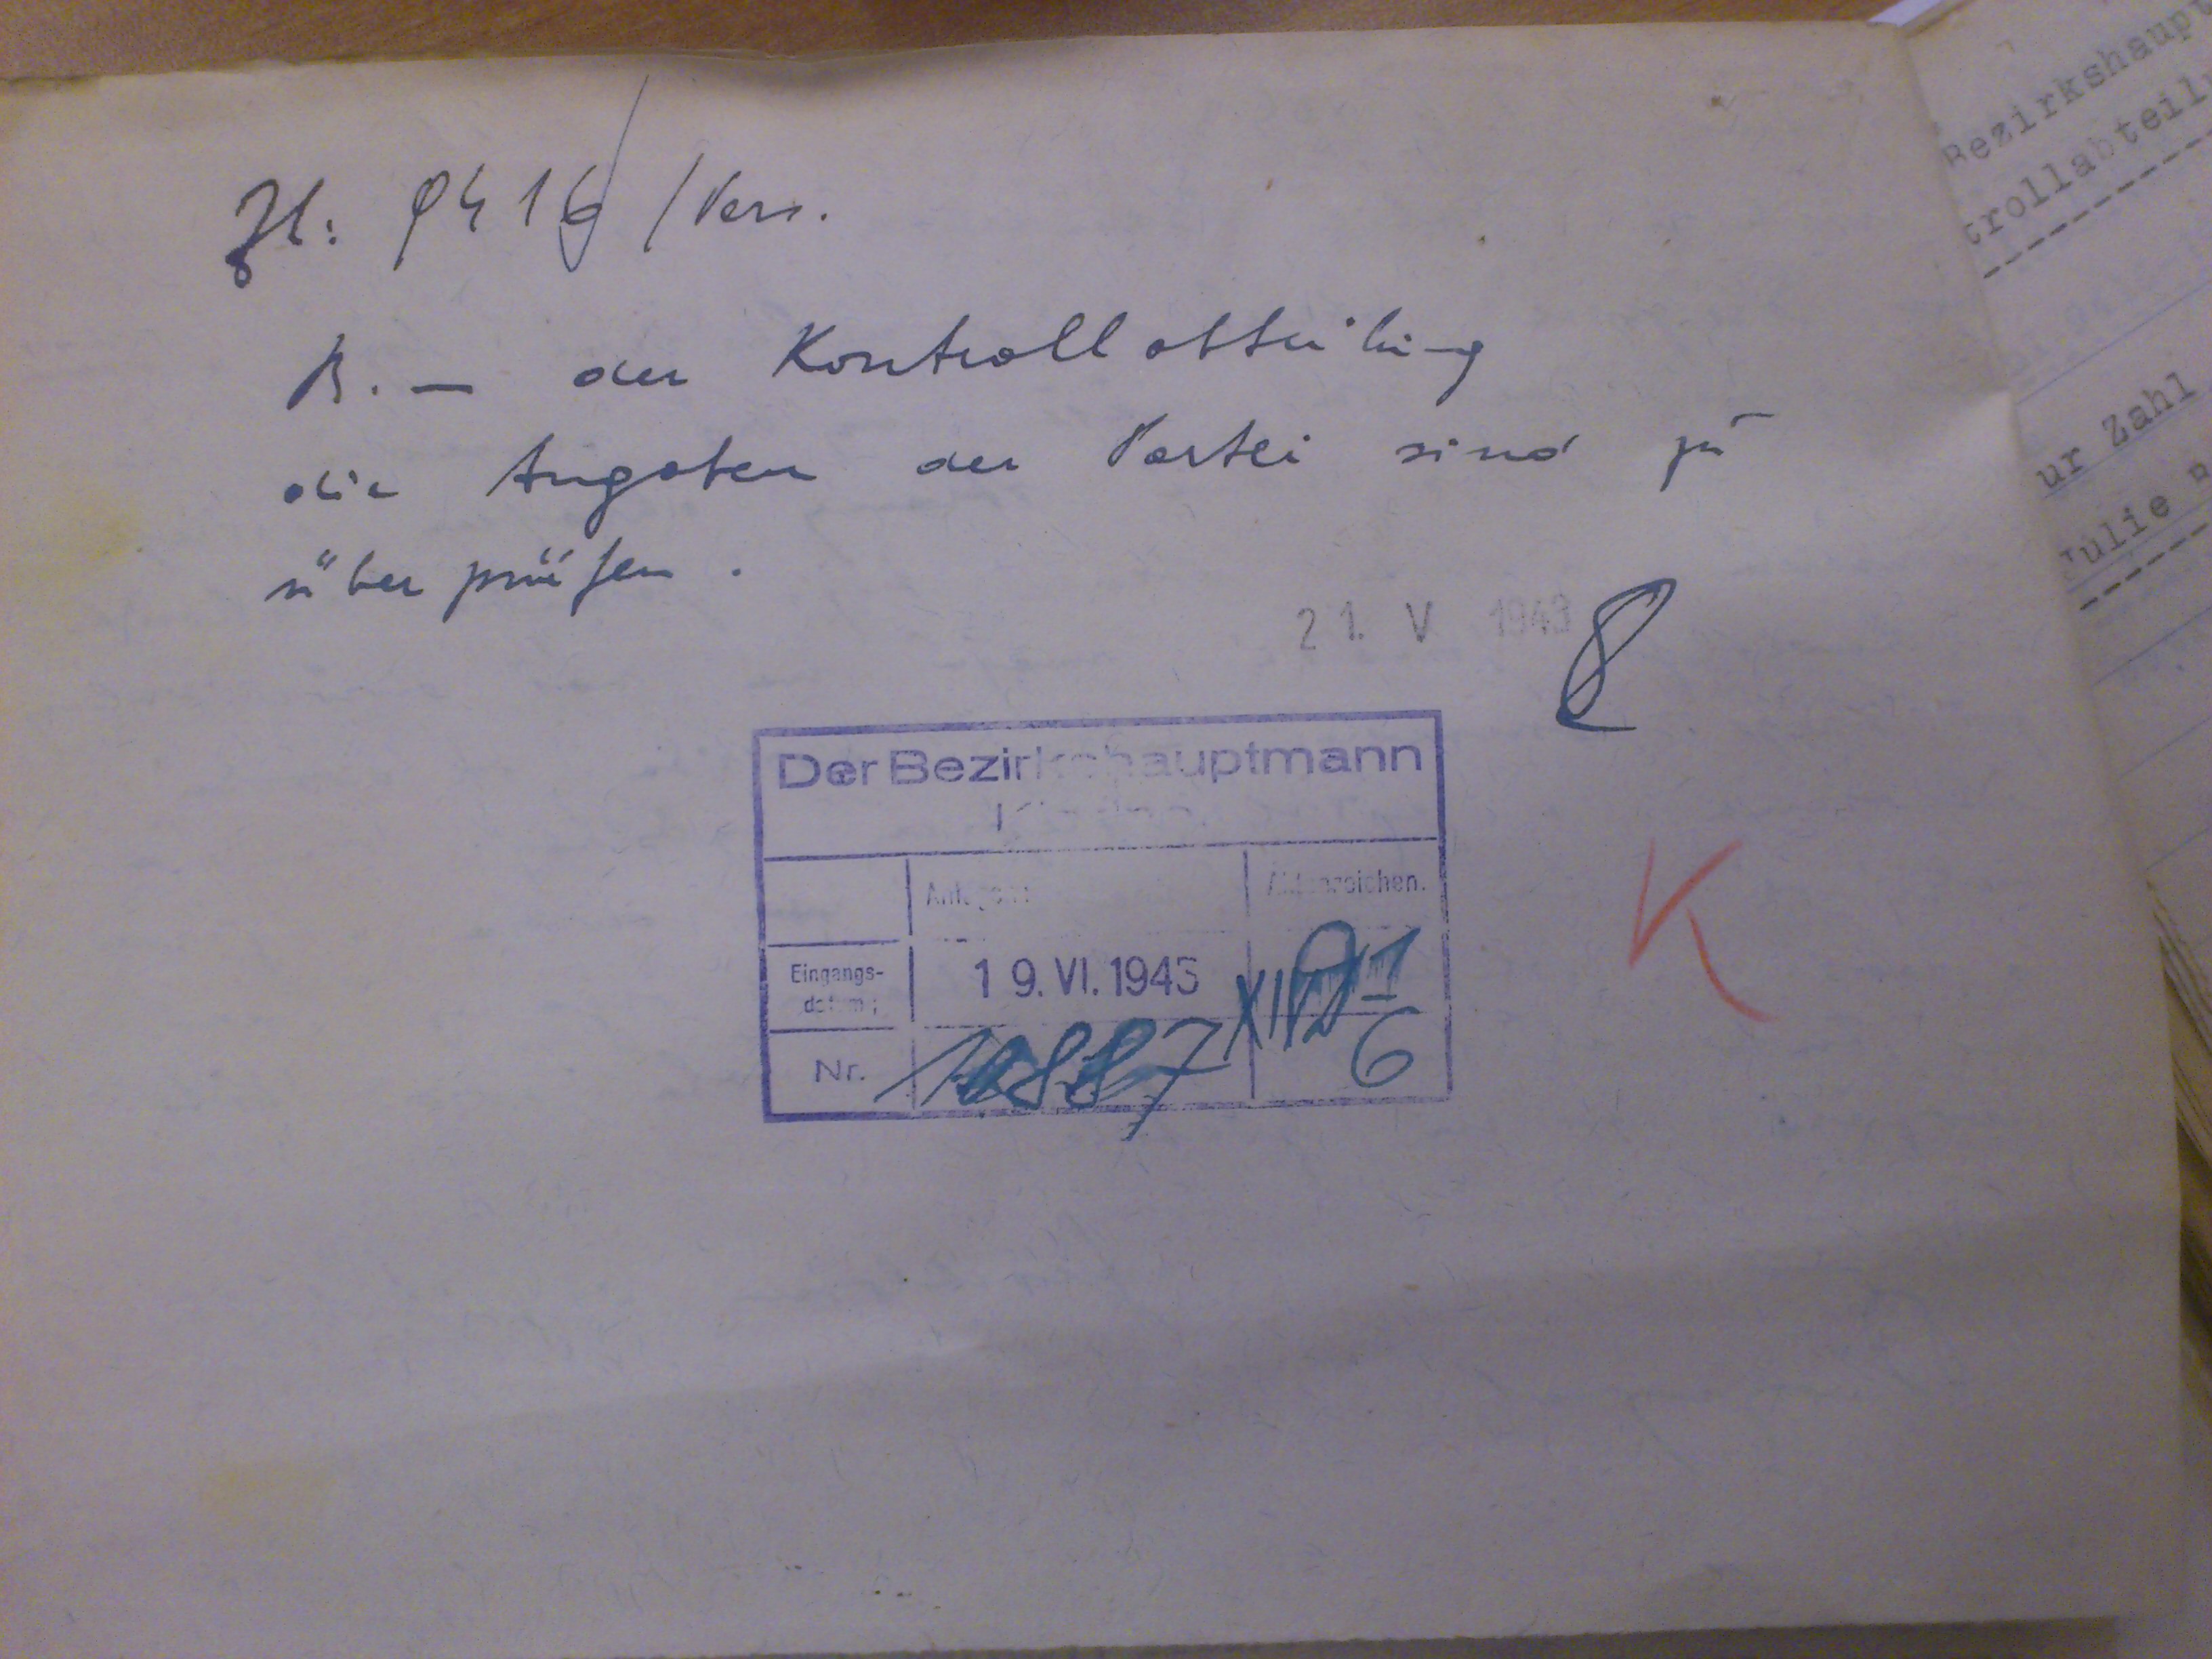 Zl: 9416 /Vers.
B. — der Kontrollabteilung
die Angaben der Partei sind zu
überprüfen.
21. V 1943
Der Bezirkshauptmann
Aktenzeichen.
Eingangs-
datum:
19. VI. 1943
Nr.
10887
6
K
Bezirkshaupt
trollabteil
ur Zahl
Julie